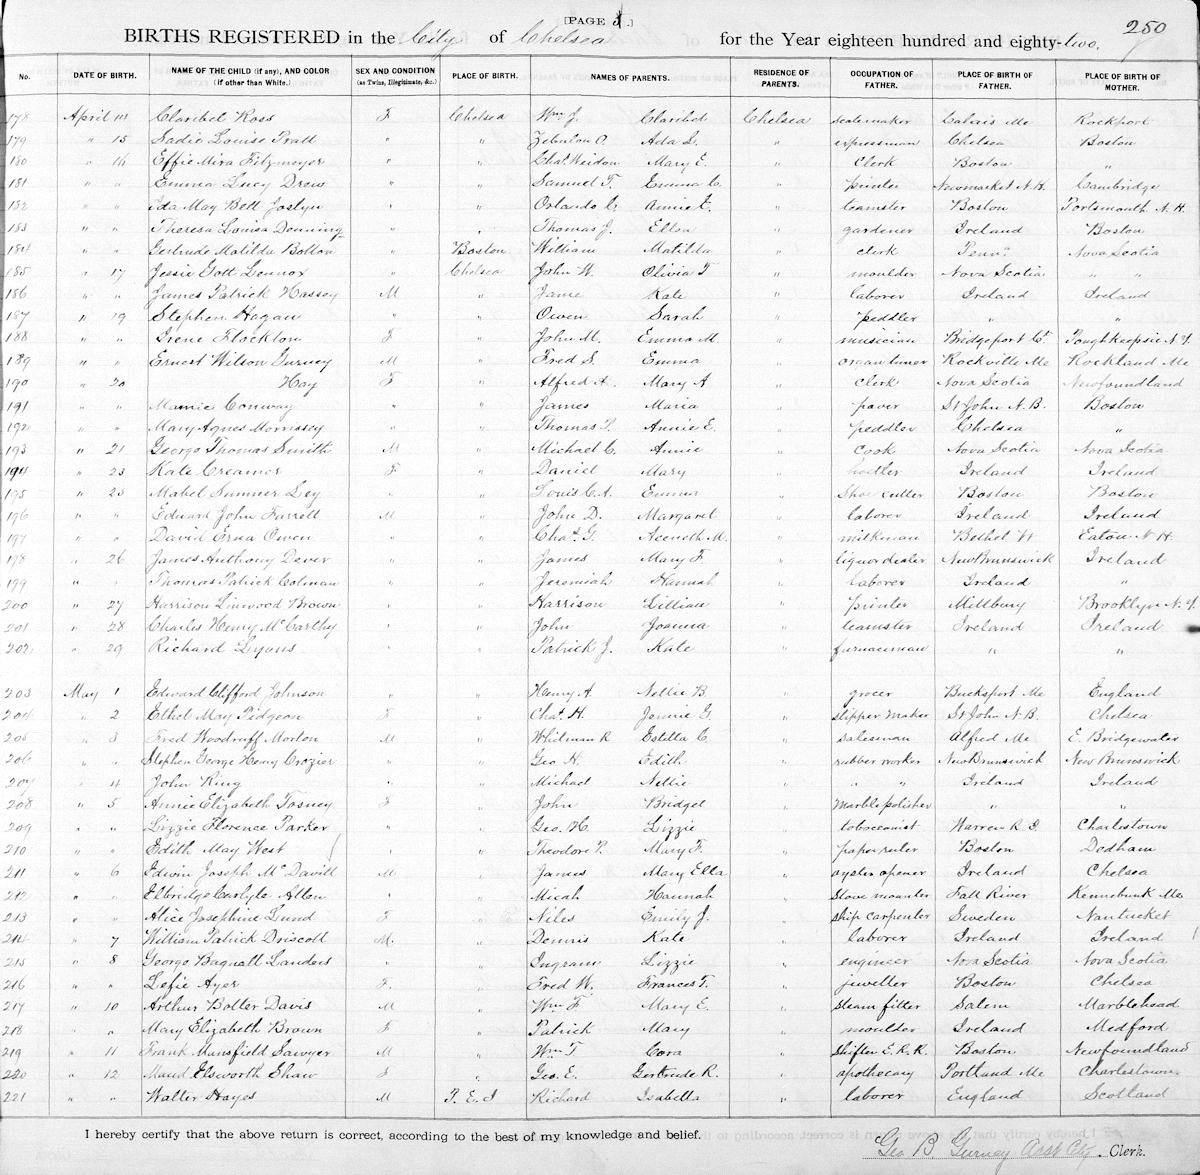 [PAGE 1.]
250
BIRTHS REGISTERED in the City of Chelsea for the Year eighteen hundred and eighty-two.
No. DATE OF BIRTH. NAME OF THE CHILD (if any), AND COLOR (if other than White.) SEX AND CONDITION (as Twins, Illegitimate, &c.) PLACE OF BIRTH. NAMES OF PARENTS. RESIDENCE OF PARENTS. OCCUPATION OF FATHER. PLACE OF BIRTH OF FATHER. PLACE OF BIRTH OF MOTHER.
178 April Claribel Ross F Chelsea Wm J. Claribel Chelsea Calais Me Rockport
179 " 15 Sadie Louise Pratt " " Zebulon O. Ada L. " expressman Chelsea Boston
180 " 16 Effie Mira Fitzmeyer " " Chas. Weidon Mary E. " clerk Boston "
181 " " Emma Lucy Drew " " Samuel T. Emma C. " printer Newmarket N.H. Cambridge
182 " " Ida May Bell Joslyn " " Orlando G. Annie E. " teamster Boston Portsmouth N.H.
183 " " Theresa Louisa Downing " " Thomas J. Ellen " gardener Ireland Boston
184 " " Gertrude Matilda Bolton " Boston William Matilda " clerk Penn. Nova Scotia
185 " 17 Jessie Gott Lennox " Chelsea John W. Olivia F. " moulder Nova Scotia " "
186 " " James Patrick Hassey M " Jame Kate " laborer Ireland Ireland
187 " 19 Stephen Hogan " " Owen Sarah " peddler " "
188 " " Irene Flockton F " John M. Emma M. " musician Bridgeport Ct. Poughkeepsie N.Y.
189 " " Ernest Wilson Gurney M " Fred S. Emma " organ tuner Rockville Me Rockland Me
190 " 20 Hay F " Alfred A. Mary A " clerk Nova Scotia Newfoundland
191 " " Mamie Conway " " James Maria " paver St John N.B. Boston
192 " " Mary Agnes Morrissey " " Thomas P. Annie E. " peddler Chelsea "
193 " 21 George Thomas Smith M " Michael C. Annie " cook Nova Scotia Nova Scotia
194 " 23 Kate Creamer F " Daniel Mary " hostler Ireland Ireland
195 " 25 Mabel Sumner Ley " " Louis C.A. Emma " Shoe cutter Boston Boston
196 " " Edward John Farrell M " John D. Margaret " laborer Ireland Ireland
197 " " David Owen " " Chas. G. Aceneth M. " milkman Bethel Vt Eaton N.H.
198 " 26 James Anthony Dever " " James Mary F. " liquor dealer New Brunswick Ireland
199 " " Thomas Patrick Colman " " Jeremiah Hannah " laborer Ireland "
200 " 27 Harrison Linwood Brown " " Harrison Lillian " printer Millbury Brooklyn N.Y.
201 " 28 Charles Henry McCarthy " " John Joanna " teamster Ireland Ireland
202 " 29 Richard Lyons " " Patrick J. Kate " furnaceman " "
203 May 1 Edward Clifford Johnson " " Henry A. Nellie B. " grocer Bucksport Me England
204 " 2 Ethel May Pidgeon F " Chas. H. Jennie G. " slipper maker St John N.B. Chelsea
205 " 3 Fred Woodruff Morton M " Whitman R Estella C. " salesman Alfred Me E. Bridgewater
206 " " Stephen George Henry Crozier " " Geo H. Edith " rubber worker New Brunswick New Brunswick
207 " 4 John King " " Michael Nellie " " " Ireland Ireland
208 " 5 Annie Elizabeth Tosney F " John Bridget " Marble polisher " "
209 " " Lizzie Florence Parker " " Geo. H. Lizzie " tobacconist Warren R.I. Charlestown
210 " " Edith May West " " Theodore P. Mary F. " paper ruler Boston Dedham
211 " 6 Edwin Joseph McDavitt M " James Mary Ella " oyster opener Ireland Chelsea
212 " " Elbridge Carlyle Allen " " Micah Hannah " Stove mounter Fall River Kennebunk Me
213 " " Alice Josephine Lund F " Niles Emily J. " ship carpenter Sweden Nantucket
214 " 7 William Patrick Driscoll M. " Dennis Kate " laborer Ireland Ireland
215 " 8 George Bagnall Landers " " Ingram Lizzie " engineer Nova Scotia Nova Scotia
216 " " Lefie Ayer F. " Fred W. Frances T. " jeweller Boston Chelsea
217 " 10 Arthur Bolter Davis M " Wm F. Mary E. " Steam fitter Salem Marblehead
218 " " Mary Elizabeth Brown F " Patrick Mary " moulder Ireland Medford
219 " 11 Frank Mansfield Sawyer M " Wm T. Cora " Shifter E.R.R. Boston Newfoundland
220 " 12 Maud Elsworth Shaw F " Geo. E. Gertrude R. " apothecary Portland Me Charlestown
221 " " Walter Hayes M P.E.I Richard Isabella " laborer England Scotland
I hereby certify that the above return is correct, according to the best of my knowledge and belief.
Geo B Gurney Asst City Clerk.